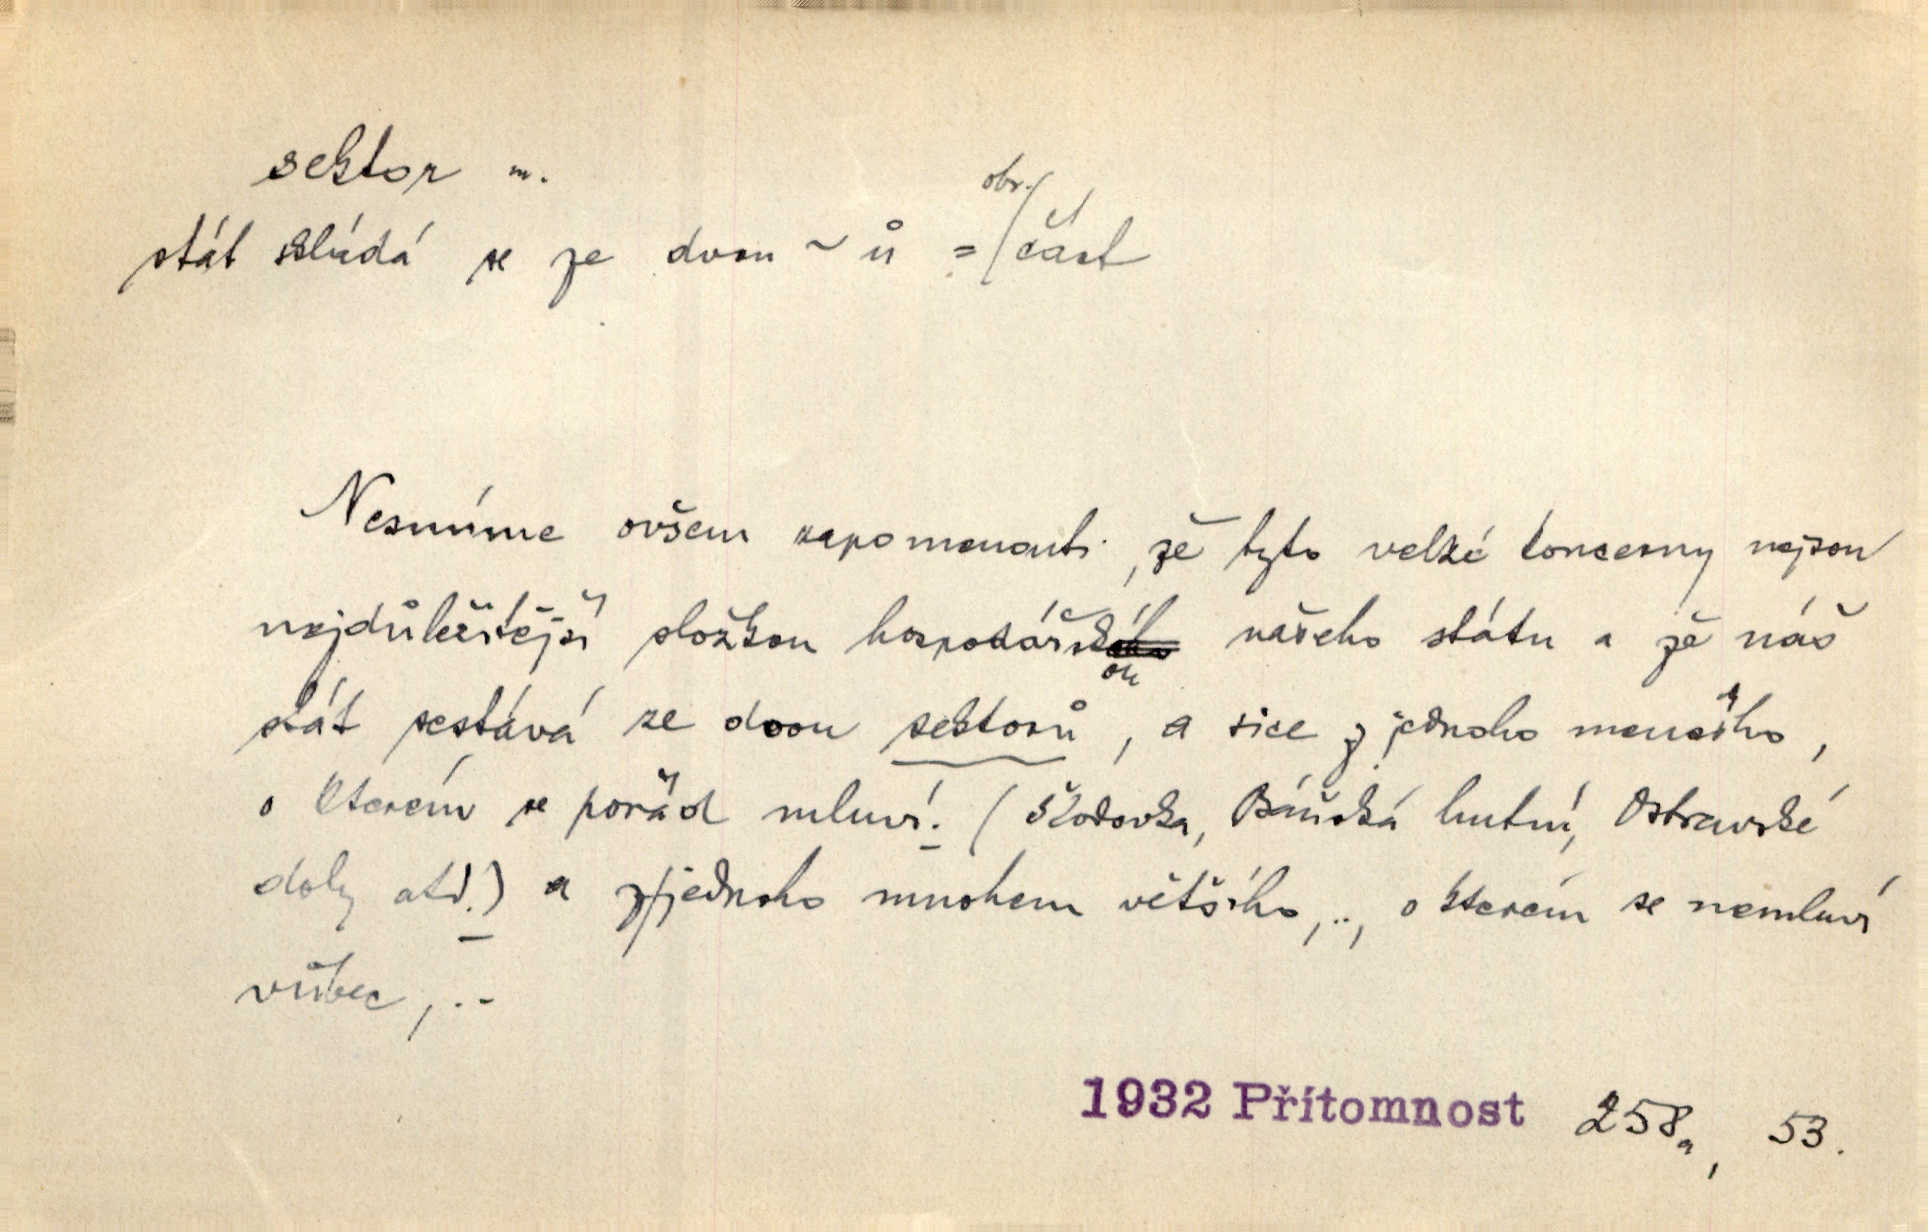 sektor m.
stát skládá se ze dvou ~ů = obr./část
Nesmíme ovšem zapomenouti, že tyto velké koncerny nejsou
nejdůležitější složkou hospodářskou našeho státu a že náš
stát sestává ze dvou sektorů, a sice z jednoho menšího,
o kterém se pořád mluví. (Škodovka, Báňská hutní, Ostravské
doly atd.) a z jednoho mnohem většího, .., o kterém se nemluví
vůbec, ..
1932 Přítomnost 258a, 53.